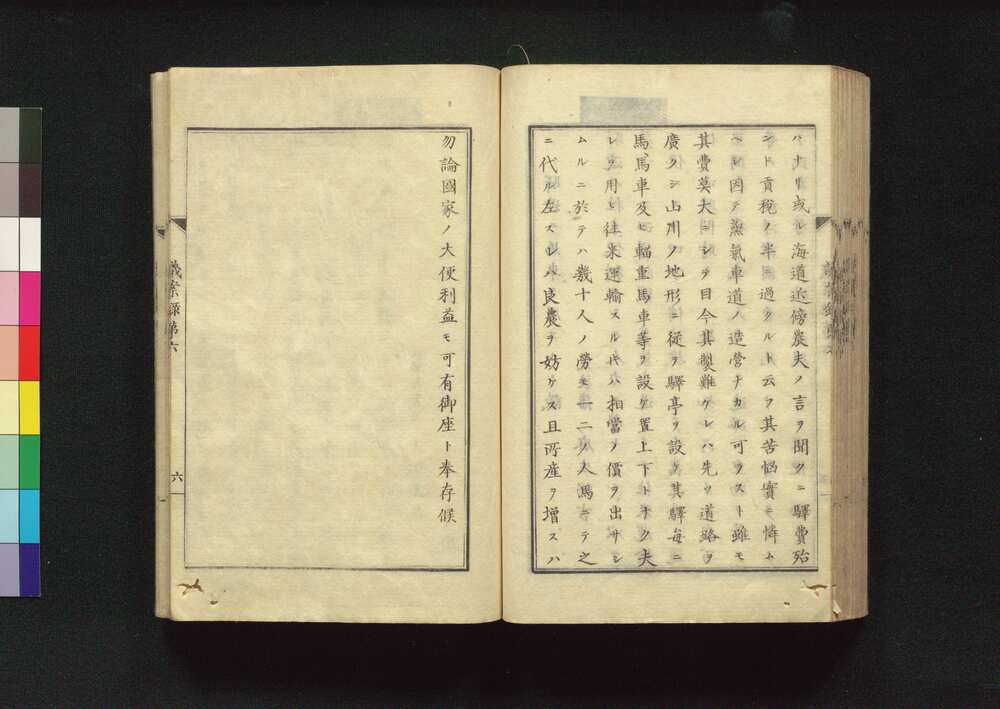 ハナリ或ル海道近傍農夫ノ言ヲ聞クニ驛費殆
ンド貢税ノ半ニ過クルト云フ其苦惱實ニ憐ム
ヘシ因テ蒸氣車道ノ造營ナカル可ラスト雖モ
其費莫大ニシテ目今其製難ケレハ先ツ道路ヲ
廣クシ山川ノ地形ニ従ヲ驛亭ヲ設ケ其驛每ニ
馬馬車及ヒ輜重馬車等ヲ設ケ置上下トナク夫
レヲ用ヒ往来運輸スル片ハ相當ノ價ヲ出サシ
ムルニ於テハ幾十人ノ勞モ一二ノ人馬ニテ之
ニ代ル左スレハ良農ヲ妨ケス且所産ヲ增スハ
勿論國家ノ大便利益モ可有御座ト奉存候
議案録第六
六